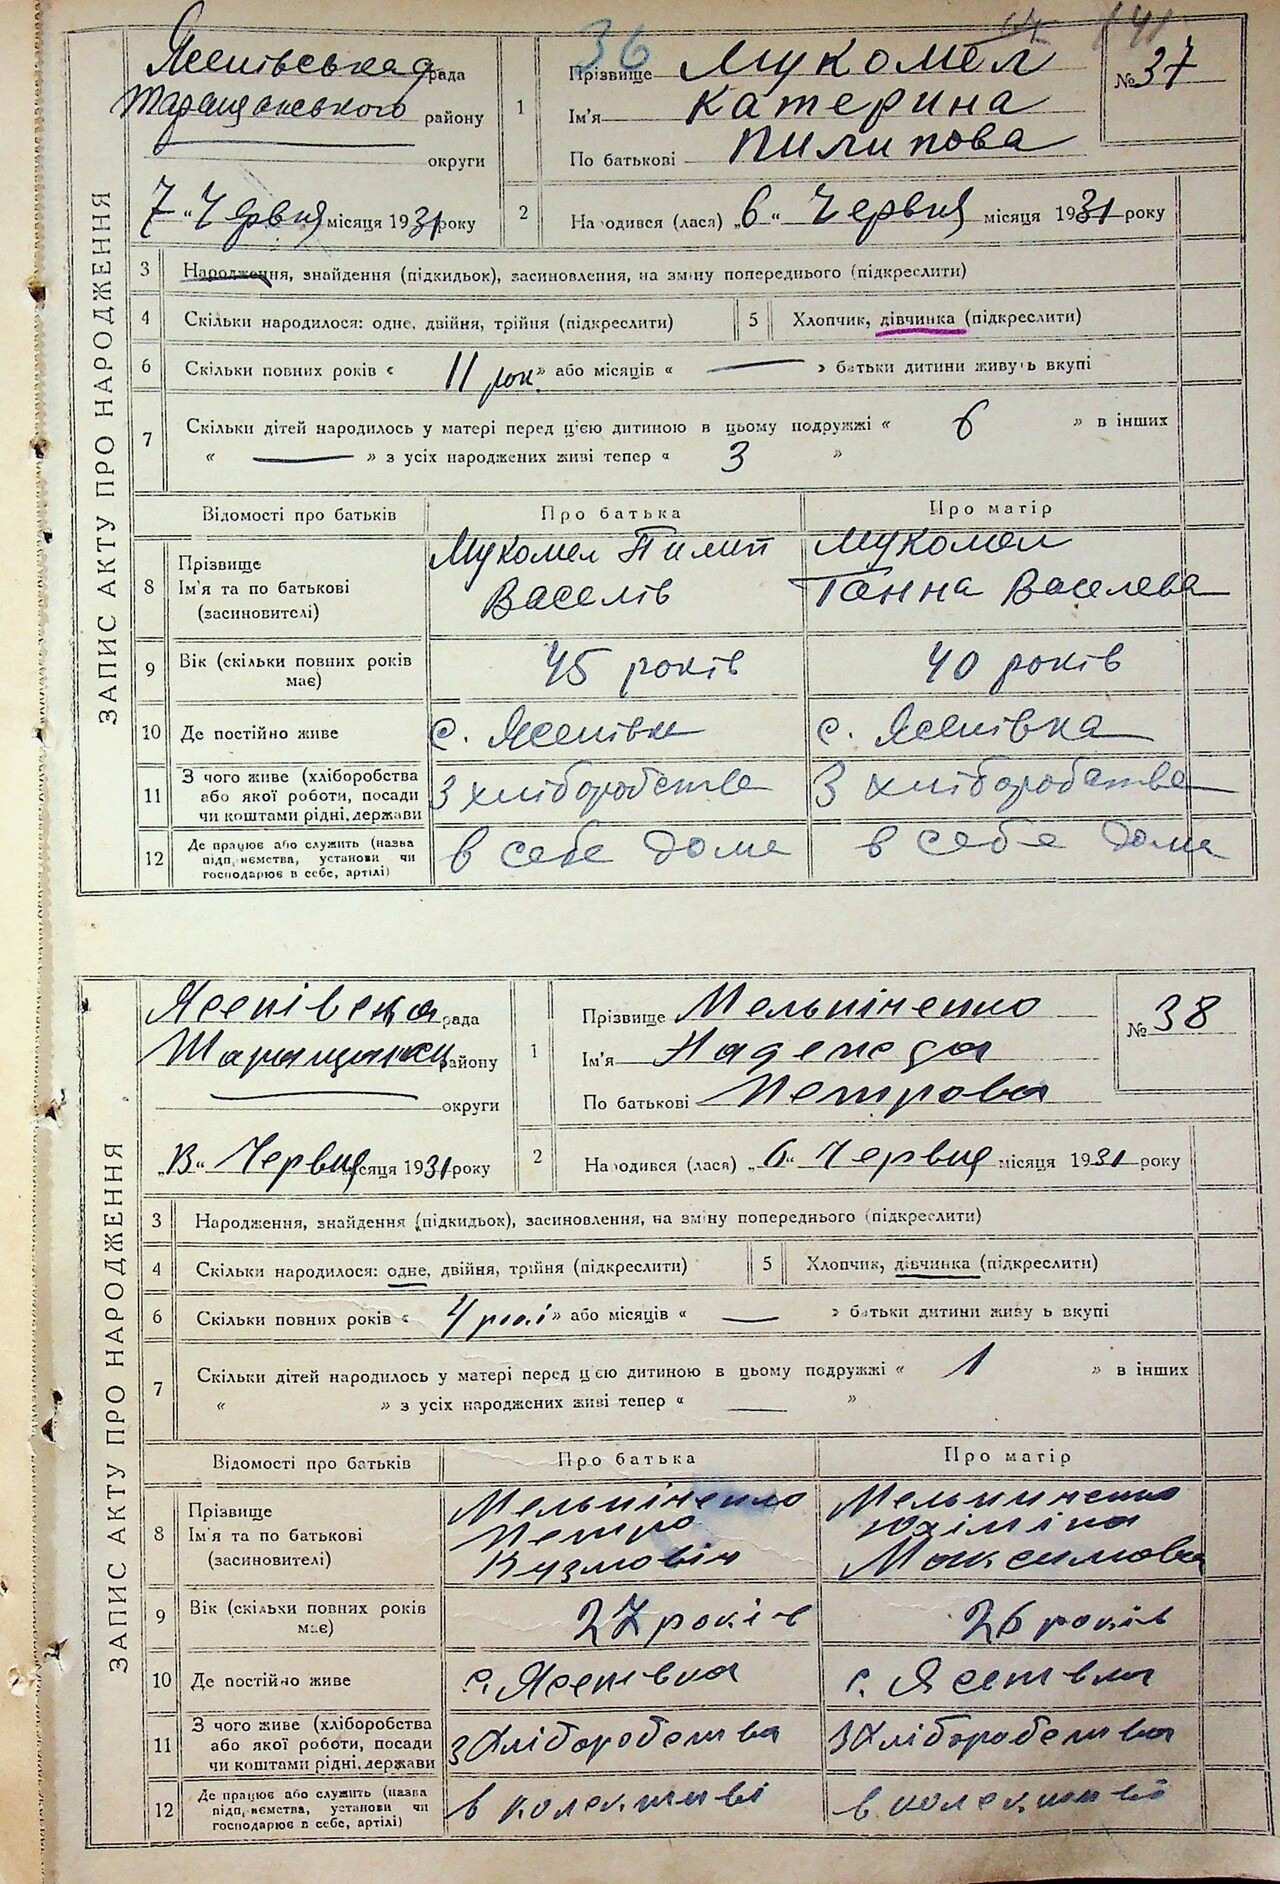 36
141
Ясенівська рада
Таращанського району
округи
1
Прізвище Мукомел
Ім'я Катерина
По батькові Пилипова
№ 37
7 "Червня місяця 1931 року
2
Народився (лася) "6" Червня місяця 1931 року
ЗАПИС АКТУ ПРО НАРОДЖЕННЯ
3 Народження, знайдення (підкидьок), засиновлення, на зміну попереднього (підкреслити)
4 Скільки народилося: одне, двійня, трійня (підкреслити) 5 Хлопчик, дівчинка (підкреслити)
6 Скільки повних років « 11 рок. » або місяців « — » батьки дитини живуть вкупі
7 Скільки дітей народилось у матері перед цією дитиною в цьому подружжі « 6 » в інших
« — » з усіх народжених живі тепер « 3 »
Відомості про батьків Про батька Про матір
8 Прізвище Мукомел Пилип Мукомел
Ім'я та по батькові Василів Ганна Василева
(засиновителі)
9 Вік (скільки повних років має) 45 років 40 років
10 Де постійно живе с. Ясенівка с. Ясенівка
11 З чого живе (хліборобства
або якої роботи, посади З хліборобства З хліборобства
чи коштами рідні, держави
12 Де працює або служить (назва
підприємства, установи чи в себе дома в себе дома
господарює в себе, артілі)
Ясенівська рада
району
округи
1
Прізвище Мельніченко
Ім'я Надежда
По батькові Петрова
№ 38
"13" Червня місяця 1931 року
2
Народився (лася) "6" Червня місяця 1931 року
ЗАПИС АКТУ ПРО НАРОДЖЕННЯ
3 Народження, знайдення (підкидьок), засиновлення, на зміну попереднього (підкреслити)
4 Скільки народилося: одне, двійня, трійня (підкреслити) 5 Хлопчик, дівчинка (підкреслити)
6 Скільки повних років « 4 рокі » або місяців « — » батьки дитини живуть вкупі
7 Скільки дітей народилось у матері перед цією дитиною в цьому подружжі « 1 » в інших
« » з усіх народжених живі тепер « — »
Відомості про батьків Про батька Про матір
8 Прізвище Мельніченко Мельниченко
Ім'я та по батькові Петро
(засиновителі) Кузмовіч Максимовна
9 Вік (скільки повних років має) 27 років 26 років
10 Де постійно живе с. Ясенівка с. Ясенівка
11 З чого живе (хліборобства
або якої роботи, посади З Хліборобства З Хліборобства
чи коштами рідні, держави
12 Де працює або служить (назва
підприємства, установи чи в колективі в колективі
господарює в себе, артілі)